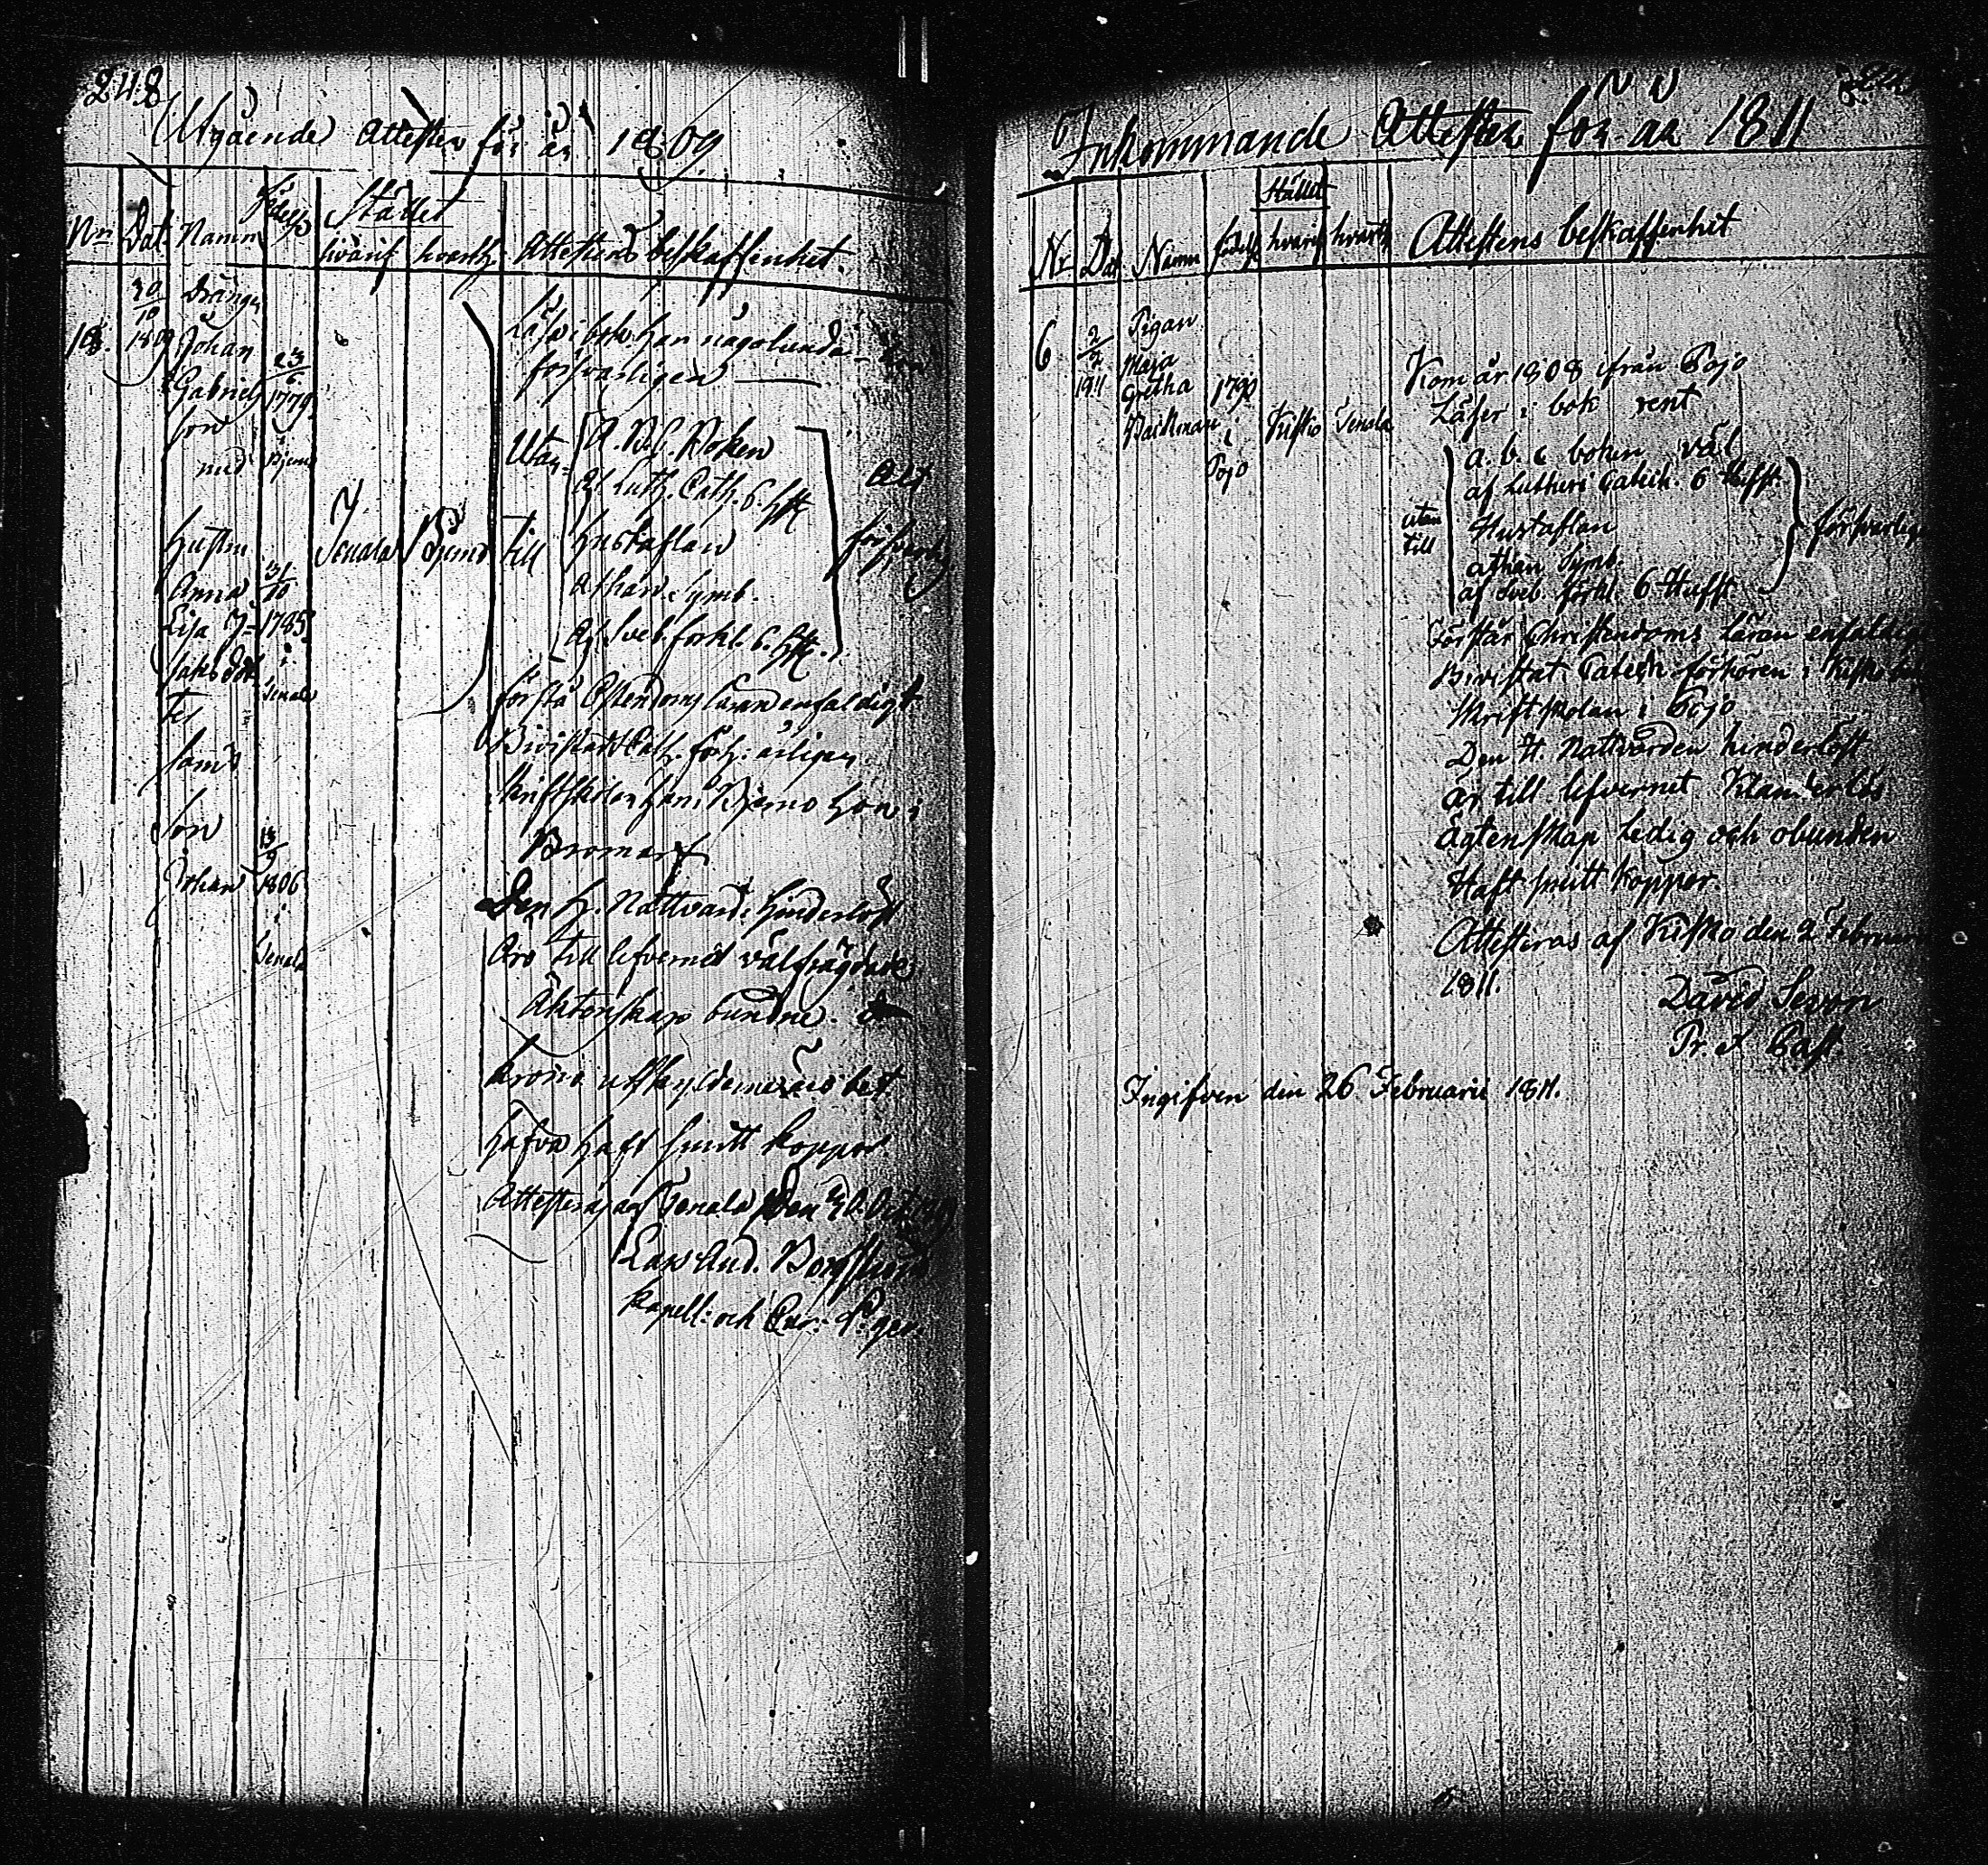 248
Utgående Attester för år 1809
Nr Dat. Namn Födelse Stället
hvarif hvarth. Attestens beskaffenhet.
30/10 Drängen
18. 1809 Johan 23/6
Gabriels 1779
son i
Hustru
Anna 31/10
Lisa J- 1785
saksdot i
ter Tenala
samt
son 13/9
Johan 1806
i
Tenala
Tenala
Läsa i bok han någorlunda - hon
försvarligen
Utan-
till
A. B. C. Boken
Af Luth. Cath. 6. Hft
Hustaflan
Athan. Symb.
Af Sveb. förkl. 6. Hft.
Alt
försvarl
förstå Christendoms läran enfaldigt
Bivistadt Cath. förh: årligen
skriftskolan han i Bjerno hon i
Bromarf
Den H. Nattvard. hinderlöst
Äro till lefvernet välfrägdade
Äktenskap bundne.
hafva haft smitt koppor
Attesteras af Tenala den 30. Oct. 1809
Lars And. Borgström
Kapell: och
Inkommande Attester för år 1811
Stället
Nr Dat Namn födelse hvarif hvarth Attestens beskaffenhet
6 2/2 1811
Pigan
Maja
Gretha 1790
Backman i
Pojo
Kisko Tenala
Kom år 1808 ifrån Pojo
Läser i bok rent
utan
till
a. b. c boken väl
af Lutheri Catech. 6 Hufst.
Hustaflan
athan Symb.
af Sveb. förkl. 6 Hufst.
försvarlig
Förstår Christendoms Läran enfaldigt
Bivistat Catech-förhören i Kisko
skriftskolan i Pojo
Den H. Nattvarden hinderlöst
Är till lefvernet Klanderlös
Ägtenskap Ledig och obunden
Haft smitt Koppor.
Attesteras af Kisko den 2 Februarii
1811.
David Sevon
Pr. et Past.
Ingifven den 26 Februarii 1811.